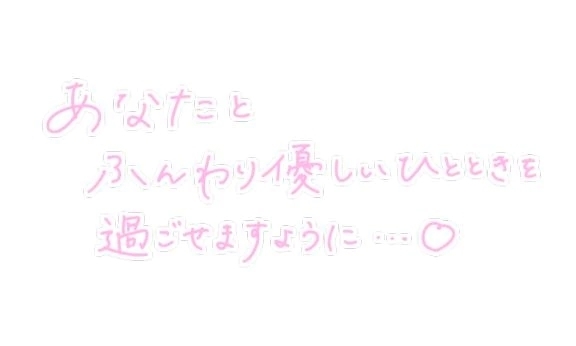 あなたと
ふんわり優しいひとときを
過ごせますように…♡